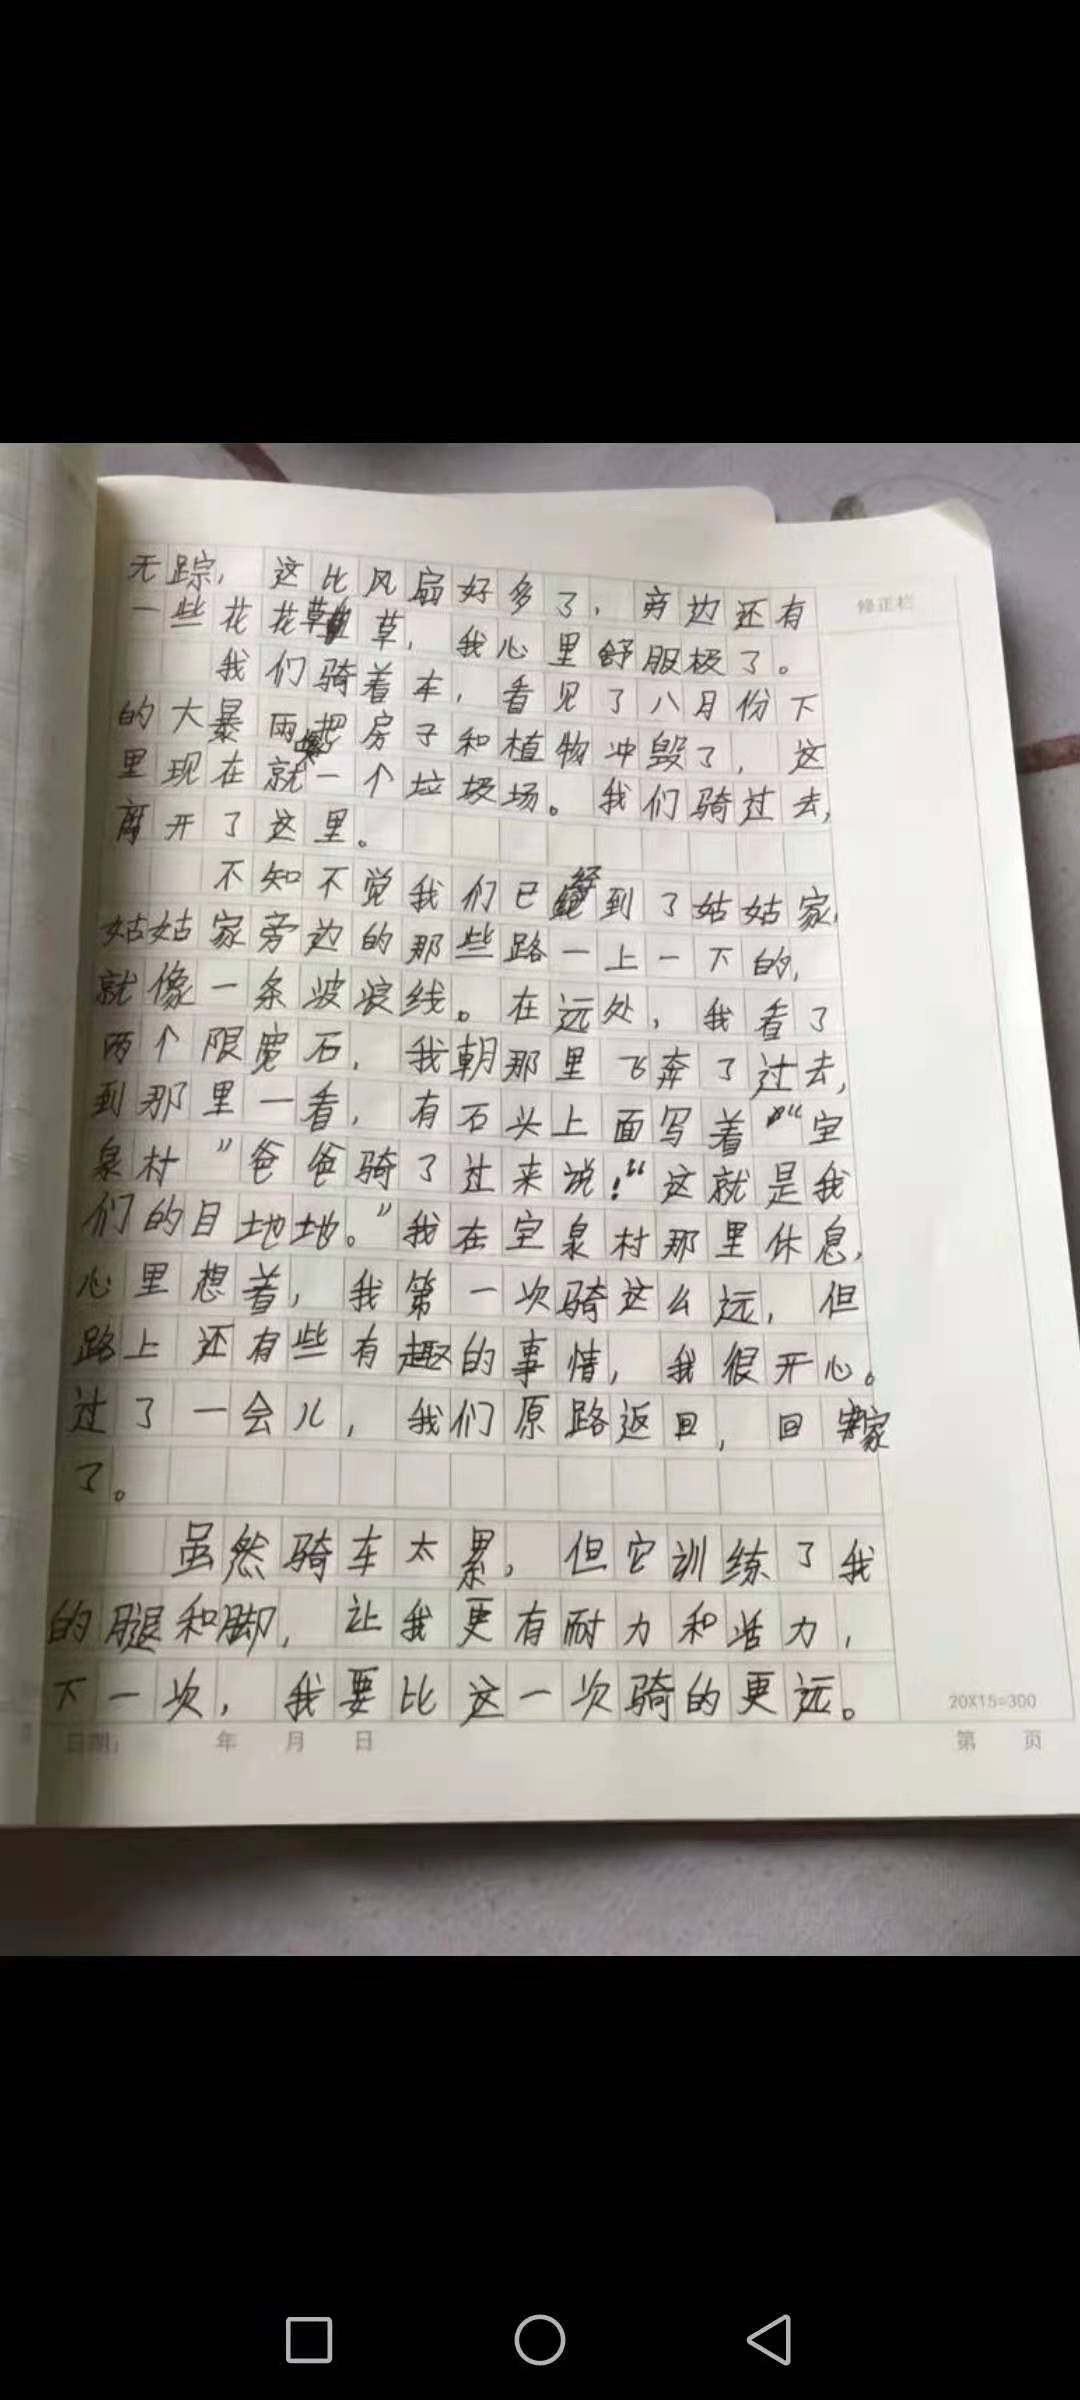 无踪，这比风扇好多了，旁边还有
一些花花草，我心里舒服极了。
修正栏
我们骑着车，看见了八月份下
的大暴雨把房子和植物冲毁了，这
里现在就一个垃圾场。我们骑过去，
离开了这里。
不知不觉我们已经到了姑姑家，
姑姑家旁边的那些路一上一下的，
就像一条波浪线。在远处，我看了
两个限宽石，我朝那里飞奔了过去，
到那里一看，有石头上面写着“宝
泉村”爸爸骑了过来说！“这就是我
们的目地地。”我在宝泉村那里休息，
心里想着，我第一次骑这么远，但
路上还有些有趣的事情，我很开心。
过了一会儿，我们原路返回，回家
了。
虽然骑车太累，但它训练了我
的腿和脚，让我更有耐力和活力，
下一次，我要比这一次骑的更远。
20X15=300
日期： 年 月 日
第 页